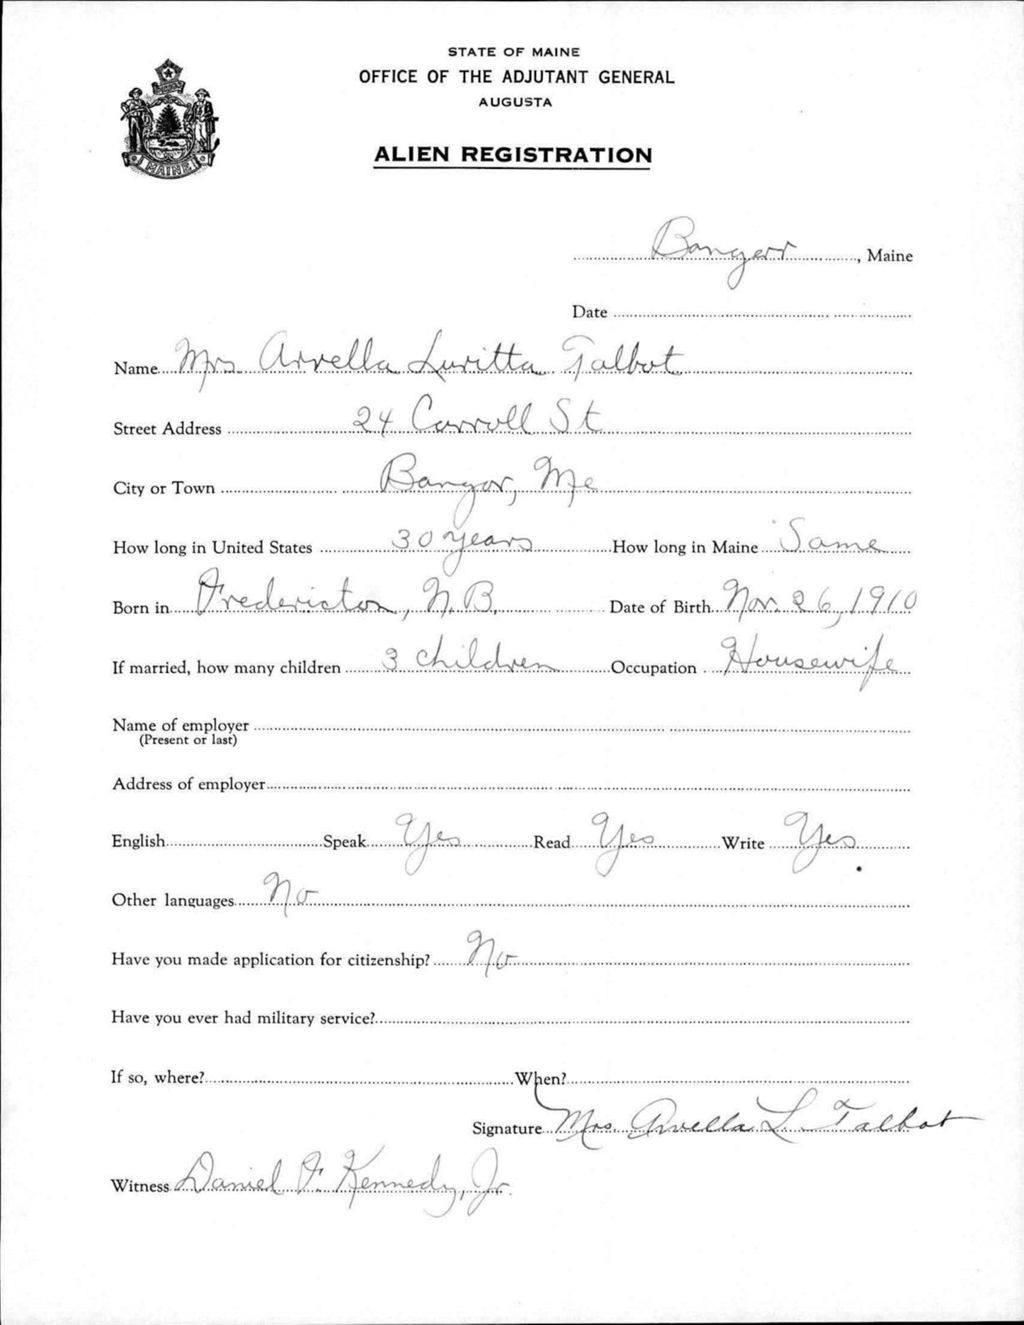 STATE OF MAINE
OFFICE OF THE ADJUTANT GENERAL
AUGUSTA
ALIEN REGISTRATION
MAINE
Bangor, Maine
Date
Name Mrs Arvella Luritta Talbot
Street Address 24 Carroll St
City or Town Bangor, Me
How long in United States 30 years How long in Maine Same
Born in Fredericton, N.B. Date of Birth Nov. 26, 1910
If married, how many children 3 children Occupation Housewife
Name of employer
(Present or last)
Address of employer
English Speak Yes Read Yes Write Yes
Other languages No
Have you made application for citizenship? No
Have you ever had military service?
If so, where? When?
Signature Mrs. Arvella L. Talbot
Witness Daniel F. Kennedy, Jr.